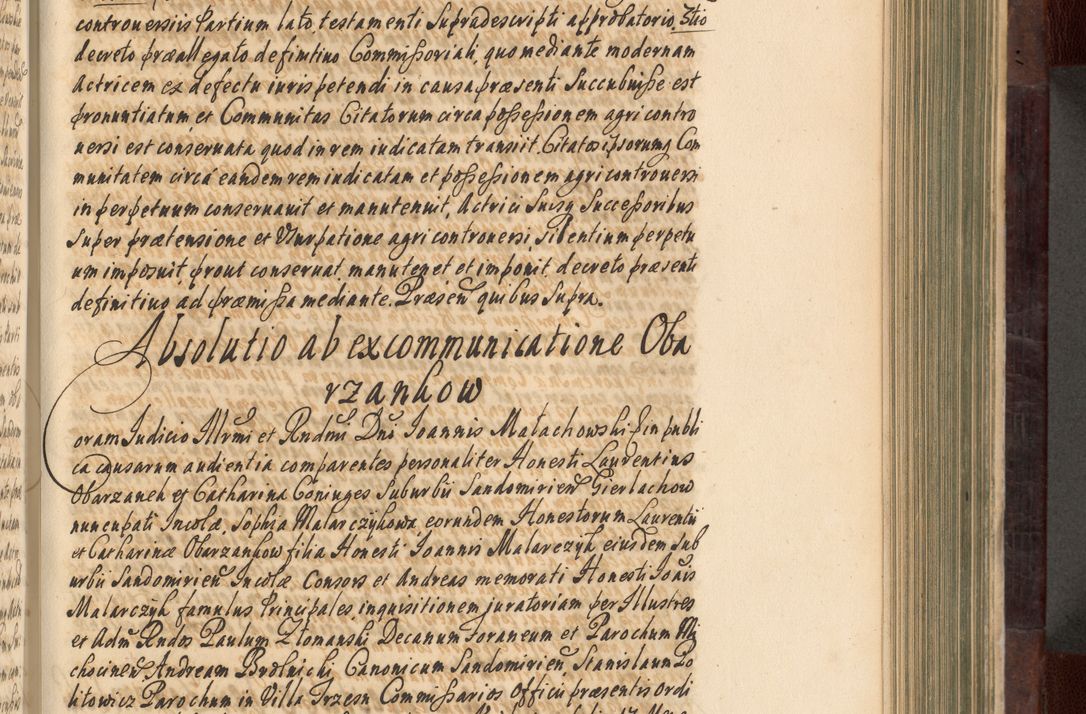 controuersiis Partium lato, testamenti Supradescripti approbatorio,
decreto præallegato definitiuo Commissoriali, quo mediante modernam
Actricem ex defectu iuris petendi in causa præsenti Succubuisse est
pronuntiatum, et Communitas Citatorum circa possessionem agri contro
uersi est conseruata, quod in rem iudicatam transiit. Citatos ipsorumq Com
munitatem circa eandem rem iudicatam et possessionem agri controuersi
in perpetuum conseruauit et manutenuit, Actrici Suisq Successoribus
super prætensione et Vsurpatione agri controuersi, silentium perpetu
um imposuit, prout conseruat, manutenet et imponit, decreto præsenti
definitiuo ad præmissa mediante. Præsen quibus Supra.
Absolutio ab excommunicatione Oba
rzankow
Coram Iudicio Illrmi et Rndmi Dni Ioannis Małachowski in publi
ca causarum audientia comparentes personaliter Honesti Laurentius
Obarzanek et Catharina Coniuges Suburbii Sandomirien Gierlachow
nuncupati Incolæ, Sophia Malarczykowa, eorundem Honestorum Laurentii
et Catharinæ Obarzankow filia Honesti Ioannis Malarczyk eiusdem Sub
urbii Sandomirien Incolæ Consors et Andreas memorati Honesti Ioais
Malarczyk famulus Principales, inquisitionem juratoriam per Illustres
et Adm Rndos Paulum Złomanski Decanum foraneum et Parochum Mi
chocinen Andream Brolnicki Canonicum Sandomirien, Stanislaum Po
litowicz Parochum in Villa Trzesn Commissarios Officii præsentis ordi